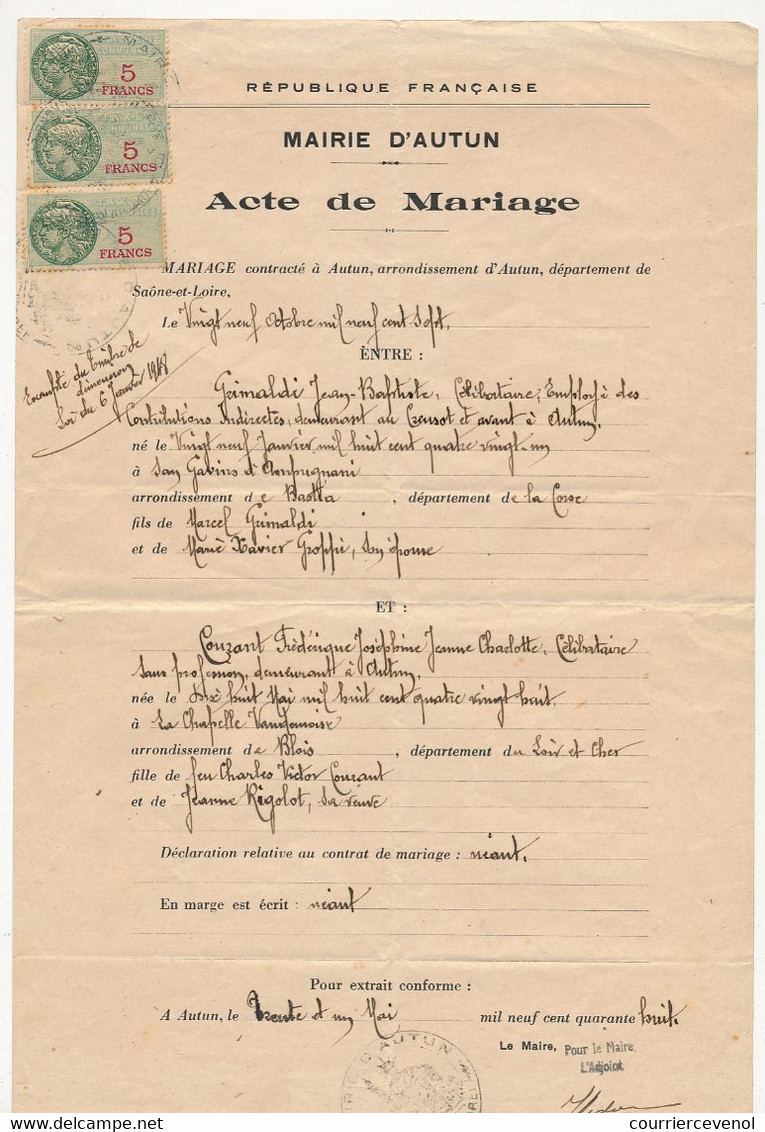 5
FRANCS
5
FRANCS
5
FRANCS
RÉPUBLIQUE FRANÇAISE
MAIRIE D'AUTUN
Acte de Mariage
MARIAGE contracté à Autun, arrondissement d'Autun, département de
Saône-et-Loire,
Le Vingt neuf Octobre mil neuf cent sept.
Exempté du timbre de
dimension
Loi du 6 Janvier 1948
ENTRE :
Grimaldi Jean-Baptiste, Célibataire, Employé des
Contributions Indirectes, demeurant au Creusot et avant à Autun,
né le Vingt neuf Janvier mil huit cent quatre vingt-un
à San Gavino d'Ampugnani
arrondissement de Bastia, département de la Corse
fils de Marcel Grimaldi
et de Marie Xavier Groppi, son épouse
ET :
Couzant Frédérique Joséphine Jeanne Charlotte, Célibataire
sans profession, demeurant à Autun,
née le Dix huit Mai mil huit cent quatre vingt huit.
à La Chapelle Vendomoise
arrondissement de Blois, département du Loir et Cher
fille de feu Charles Victor Couzant
et de Jeanne Rigolot, sa veuve
Déclaration relative au contrat de mariage : néant.
En marge est écrit : néant
Pour extrait conforme :
A Autun, le Trente et un Mai mil neuf cent quarante huit.
Le Maire, Pour le Maire
L'Adjoint
MAIRIE D'AUTUN
courriercevenol
© delcampe.net courriercevenol